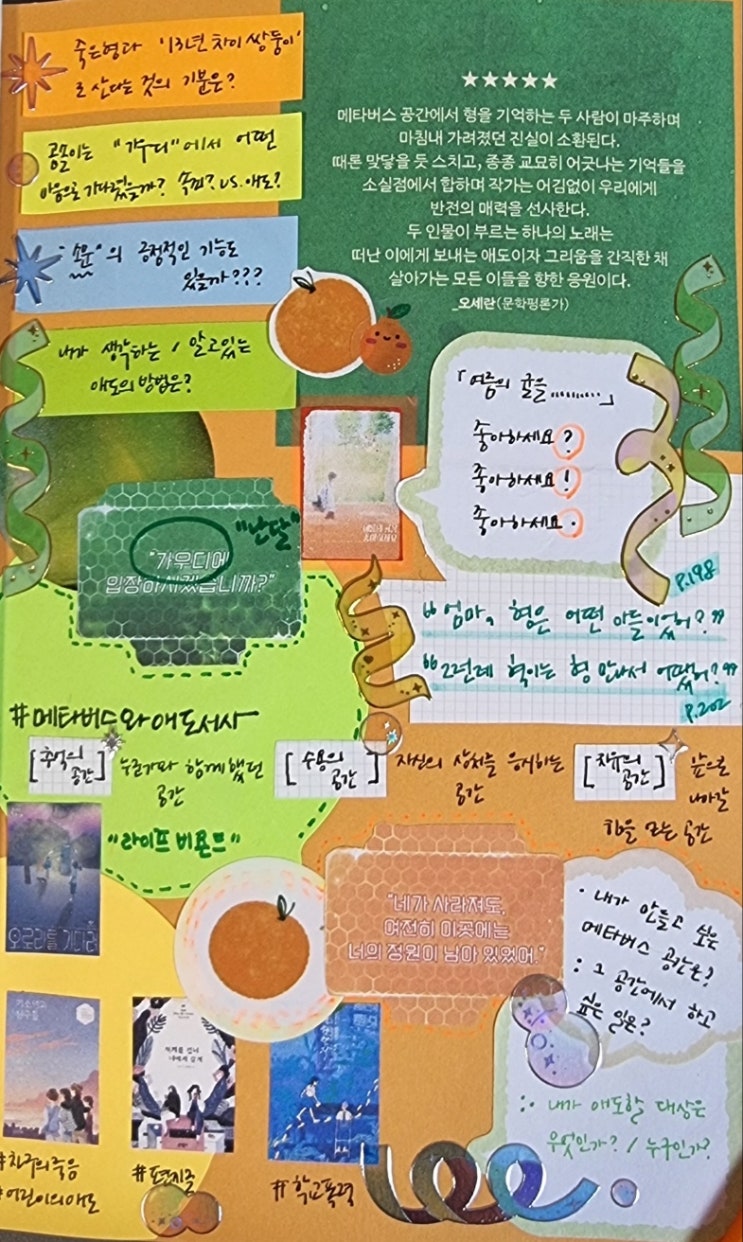 죽은형과 '13년 차이 쌍둥이'
로 산다는 것의 기분은?
곰솔이는 "가우디"에서 어떤
마음으로 기다렸을까? 속죄? vs. 애도?
"소문"의 긍정적인 기능도
있을까???
내가 생각하는 / 알고있는
애도의 방법은?
★★★★★
메타버스 공간에서 형을 기억하는 두 사람이 마주하며
마침내 가려졌던 진실이 소환된다.
때론 맞닿을 듯 스치고, 종종 교묘히 어긋나는 기억들을
소실점에서 합하며 작가는 어김없이 우리에게
반전의 매력을 선사한다.
두 인물이 부르는 하나의 노래는
떠난 이에게 보내는 애도이자 그리움을 간직한 채
살아가는 모든 이들을 향한 응원이다.
_오세란(문학평론가)
「여름의 귤을..........」
좋아하세요?
좋아하세요!
좋아하세요.
"난달"
"가우디에
입장하시겠습니까?"
P.198
"엄마, 형은 어떤 아들이었어?"
"그런데 혁이는 형 만나서 어땠어?"
P.202
#메타버스와 애도서사
[추억의 공간] 누군가와 함께했던 공간
[수용의 공간] 자신의 상처를 응시하는 공간
[치유의 공간] 앞으로 나아갈 힘을 모으는 공간
"라이프 비욘드"
오로라를 기다려
"네가 사라져도,
여전히 이곳에는
너의 정원이 남아 있었어."
· 내가 만들고 싶은
메타버스 공간은?
: 그 공간에서 하고
싶은 일은?
:· 내가 애도할 대상은
무엇인가? / 누구인가?
#친구의죽음
#어린이의애도
#편지글
#학교폭력